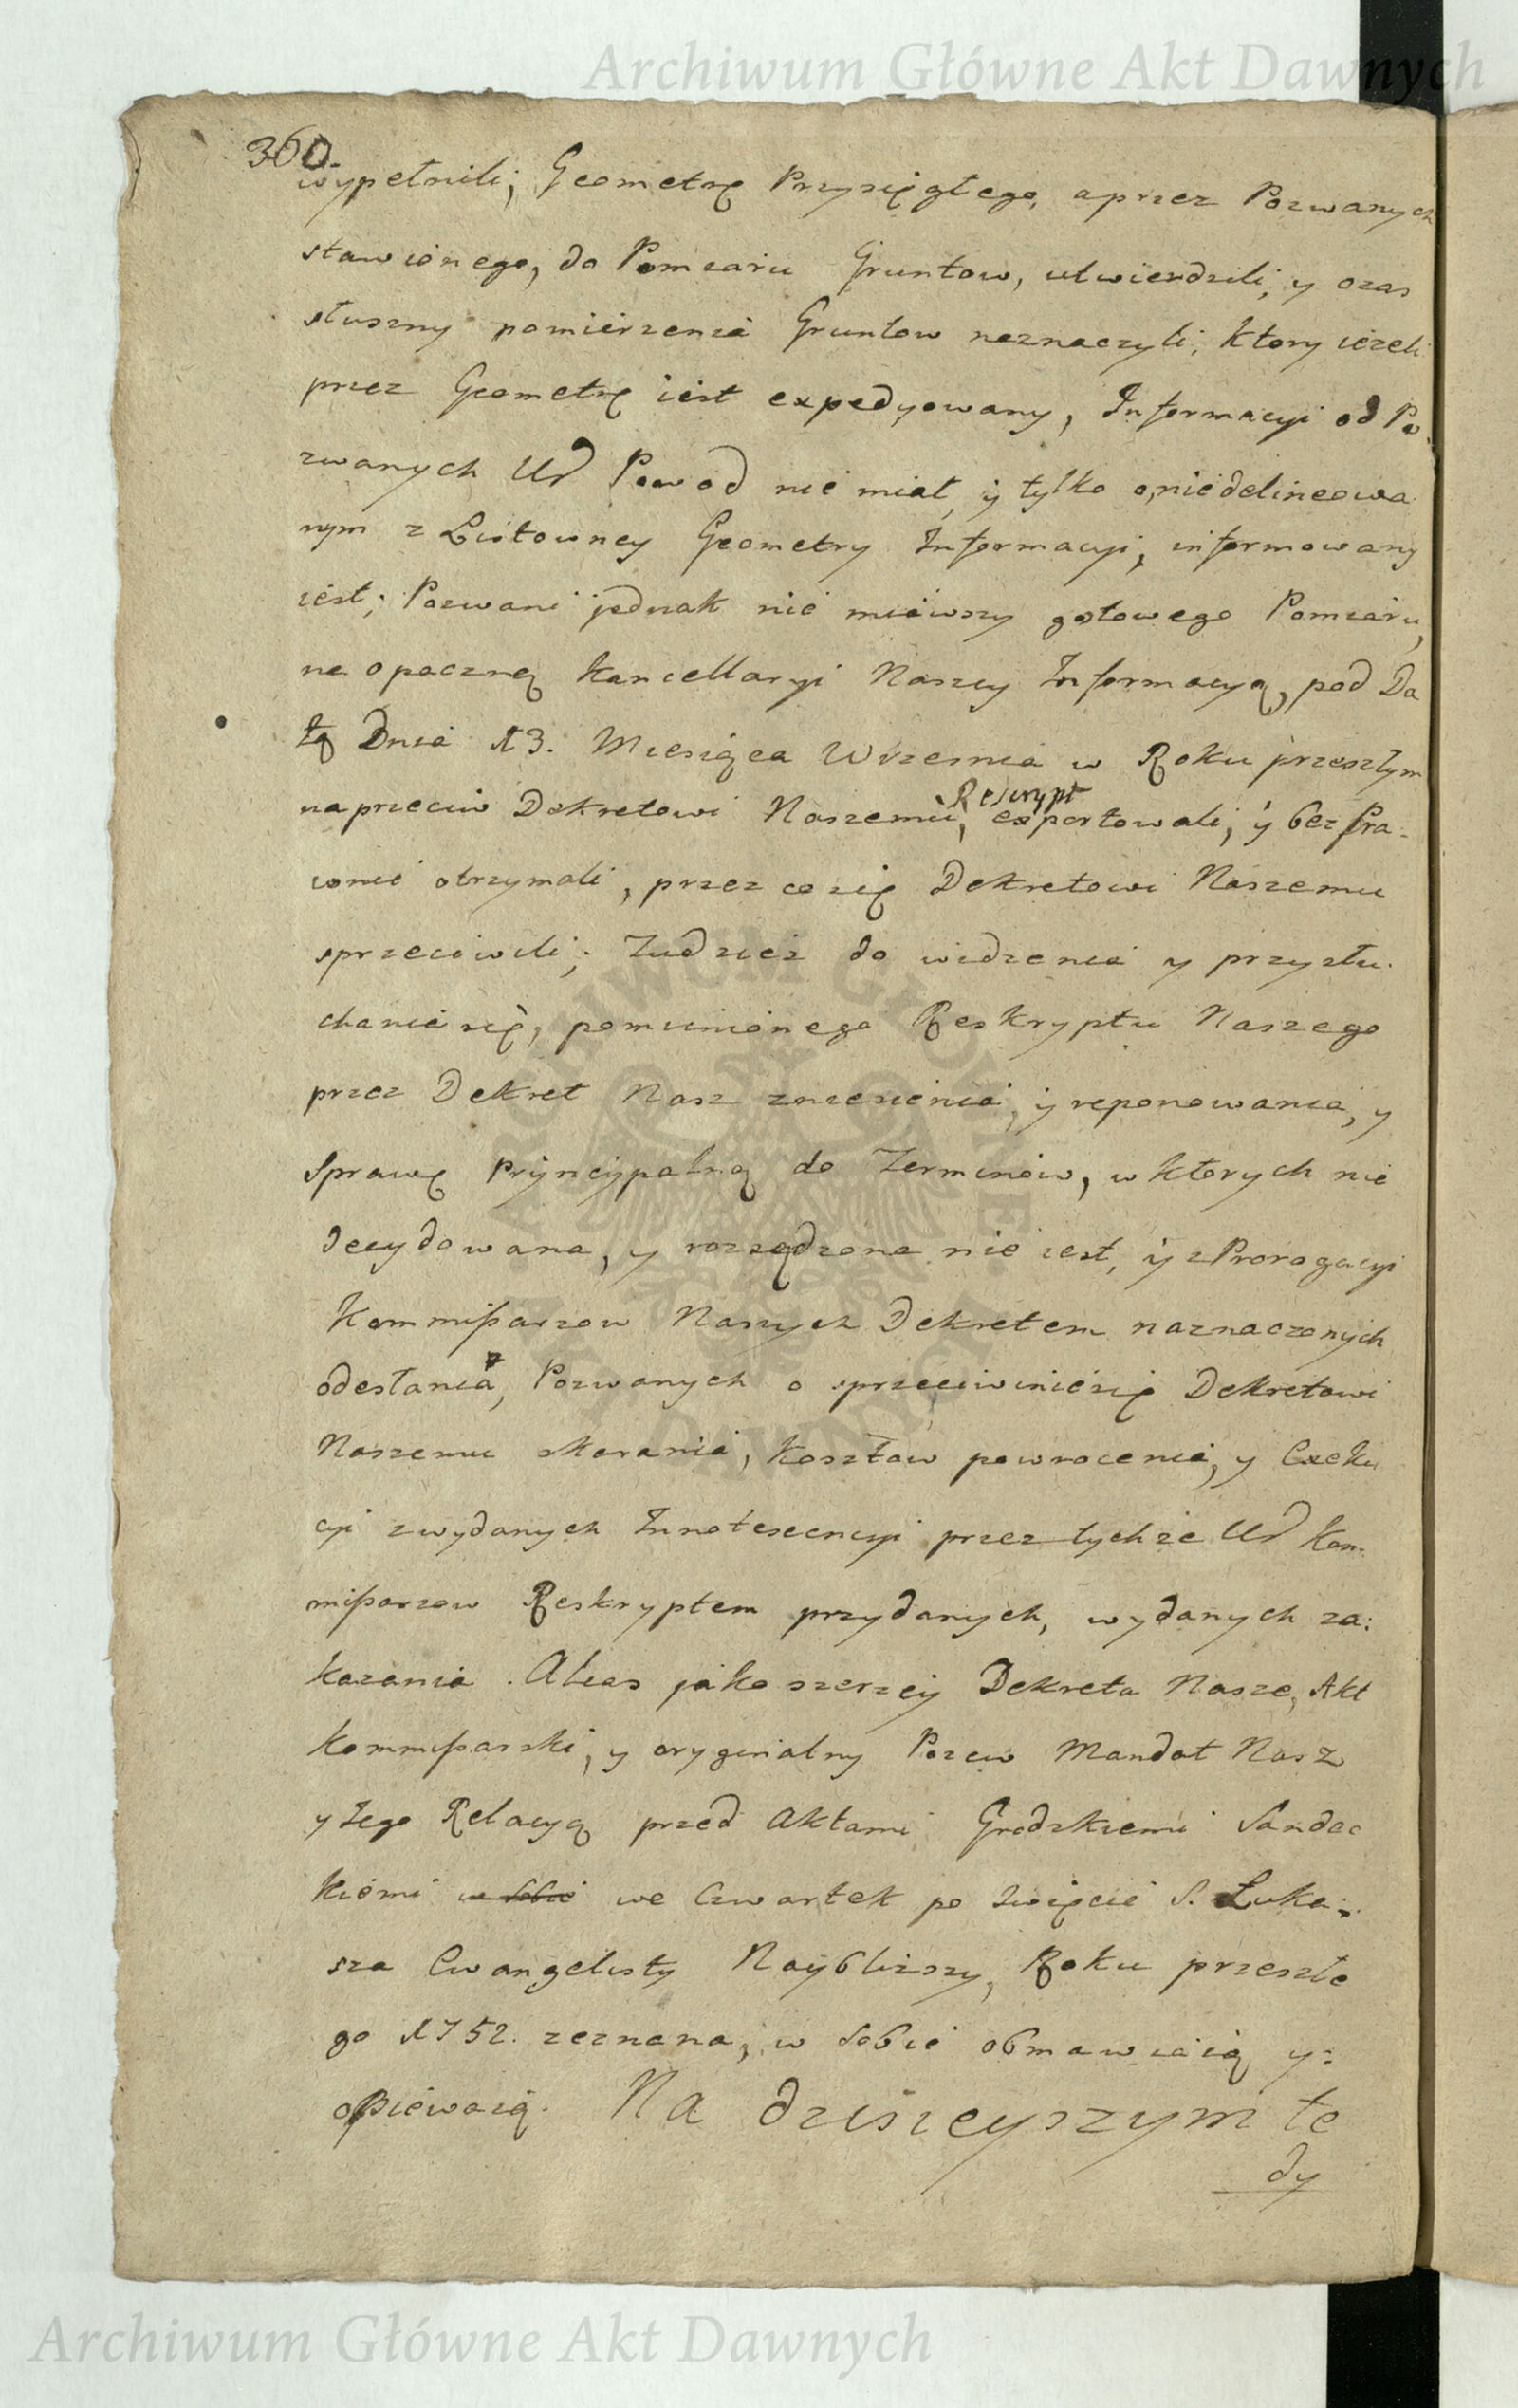 Archiwum Główne Akt Dawnych
360.
wypełnili; Geometrę Przysięgłego, aprzez Pozwanych
stawionego, do Pomiaru Gruntow, utwierdzili, y czas
słuszny pomierzenia Gruntow naznaczyli, ktory ieżeli
przez Geometrę iest expedyowany, Informacyi od Po
zwanych Ur Powod nie miał, y tylko o niedelineowa
nym z Listowney Geometry Informacyi, informowany
iest; Pozwani jednak nie miawszy gotowego Pomiaru,
na opaczną Kancellaryi Naszey Informacyą, pod Da
tą Dnia 13. Miesiąca Wrzesnia w Roku przeszłym
naprzeciw Dekretowi Naszemu, Reskrypt exportowali, y bez Pra-
wnie otrzymali, przez co się Dekretowi Naszemu
sprzeciwili; Tudzież do widzenia y przysłu-
chania się, pomienionego Reskryptu Naszego
przez Dekret Nasz zniesienia, y reponowania, y
Sprawę Pryncypalną do Terminow, w ktorych nie
decydowana, y rozsądzona nie iest, y z Prorogacyi
Kommißarzow Naszych Dekretem naznaczonych
odesłania, Pozwanych o sprzeciwienie się Dekretowi
Naszemu skarania, Kosztow powrocenia, y Exeku
cyi z wydanych Innotescencyi przez tychże Ur Kom-
mißarzow Reskryptem przydanych, wydanych za-
kazania. Alias jako szerzey Dekreta Nasze, Akt
Kommißarski, y oryginalny Pozew Mandat Nasz
y Iego Relacyą przed Aktami Grodzkiemi Sandec
kiemi w sobie we Czwartek po Swięcie S. Łuka-
sza Ewangelisty Naybliższy, Roku przeszłe
go 1752. zeznana, w sobie obmawiaią y
opiewaią. Na dzisieyszym te
dy
Archiwum Główne Akt Dawnych